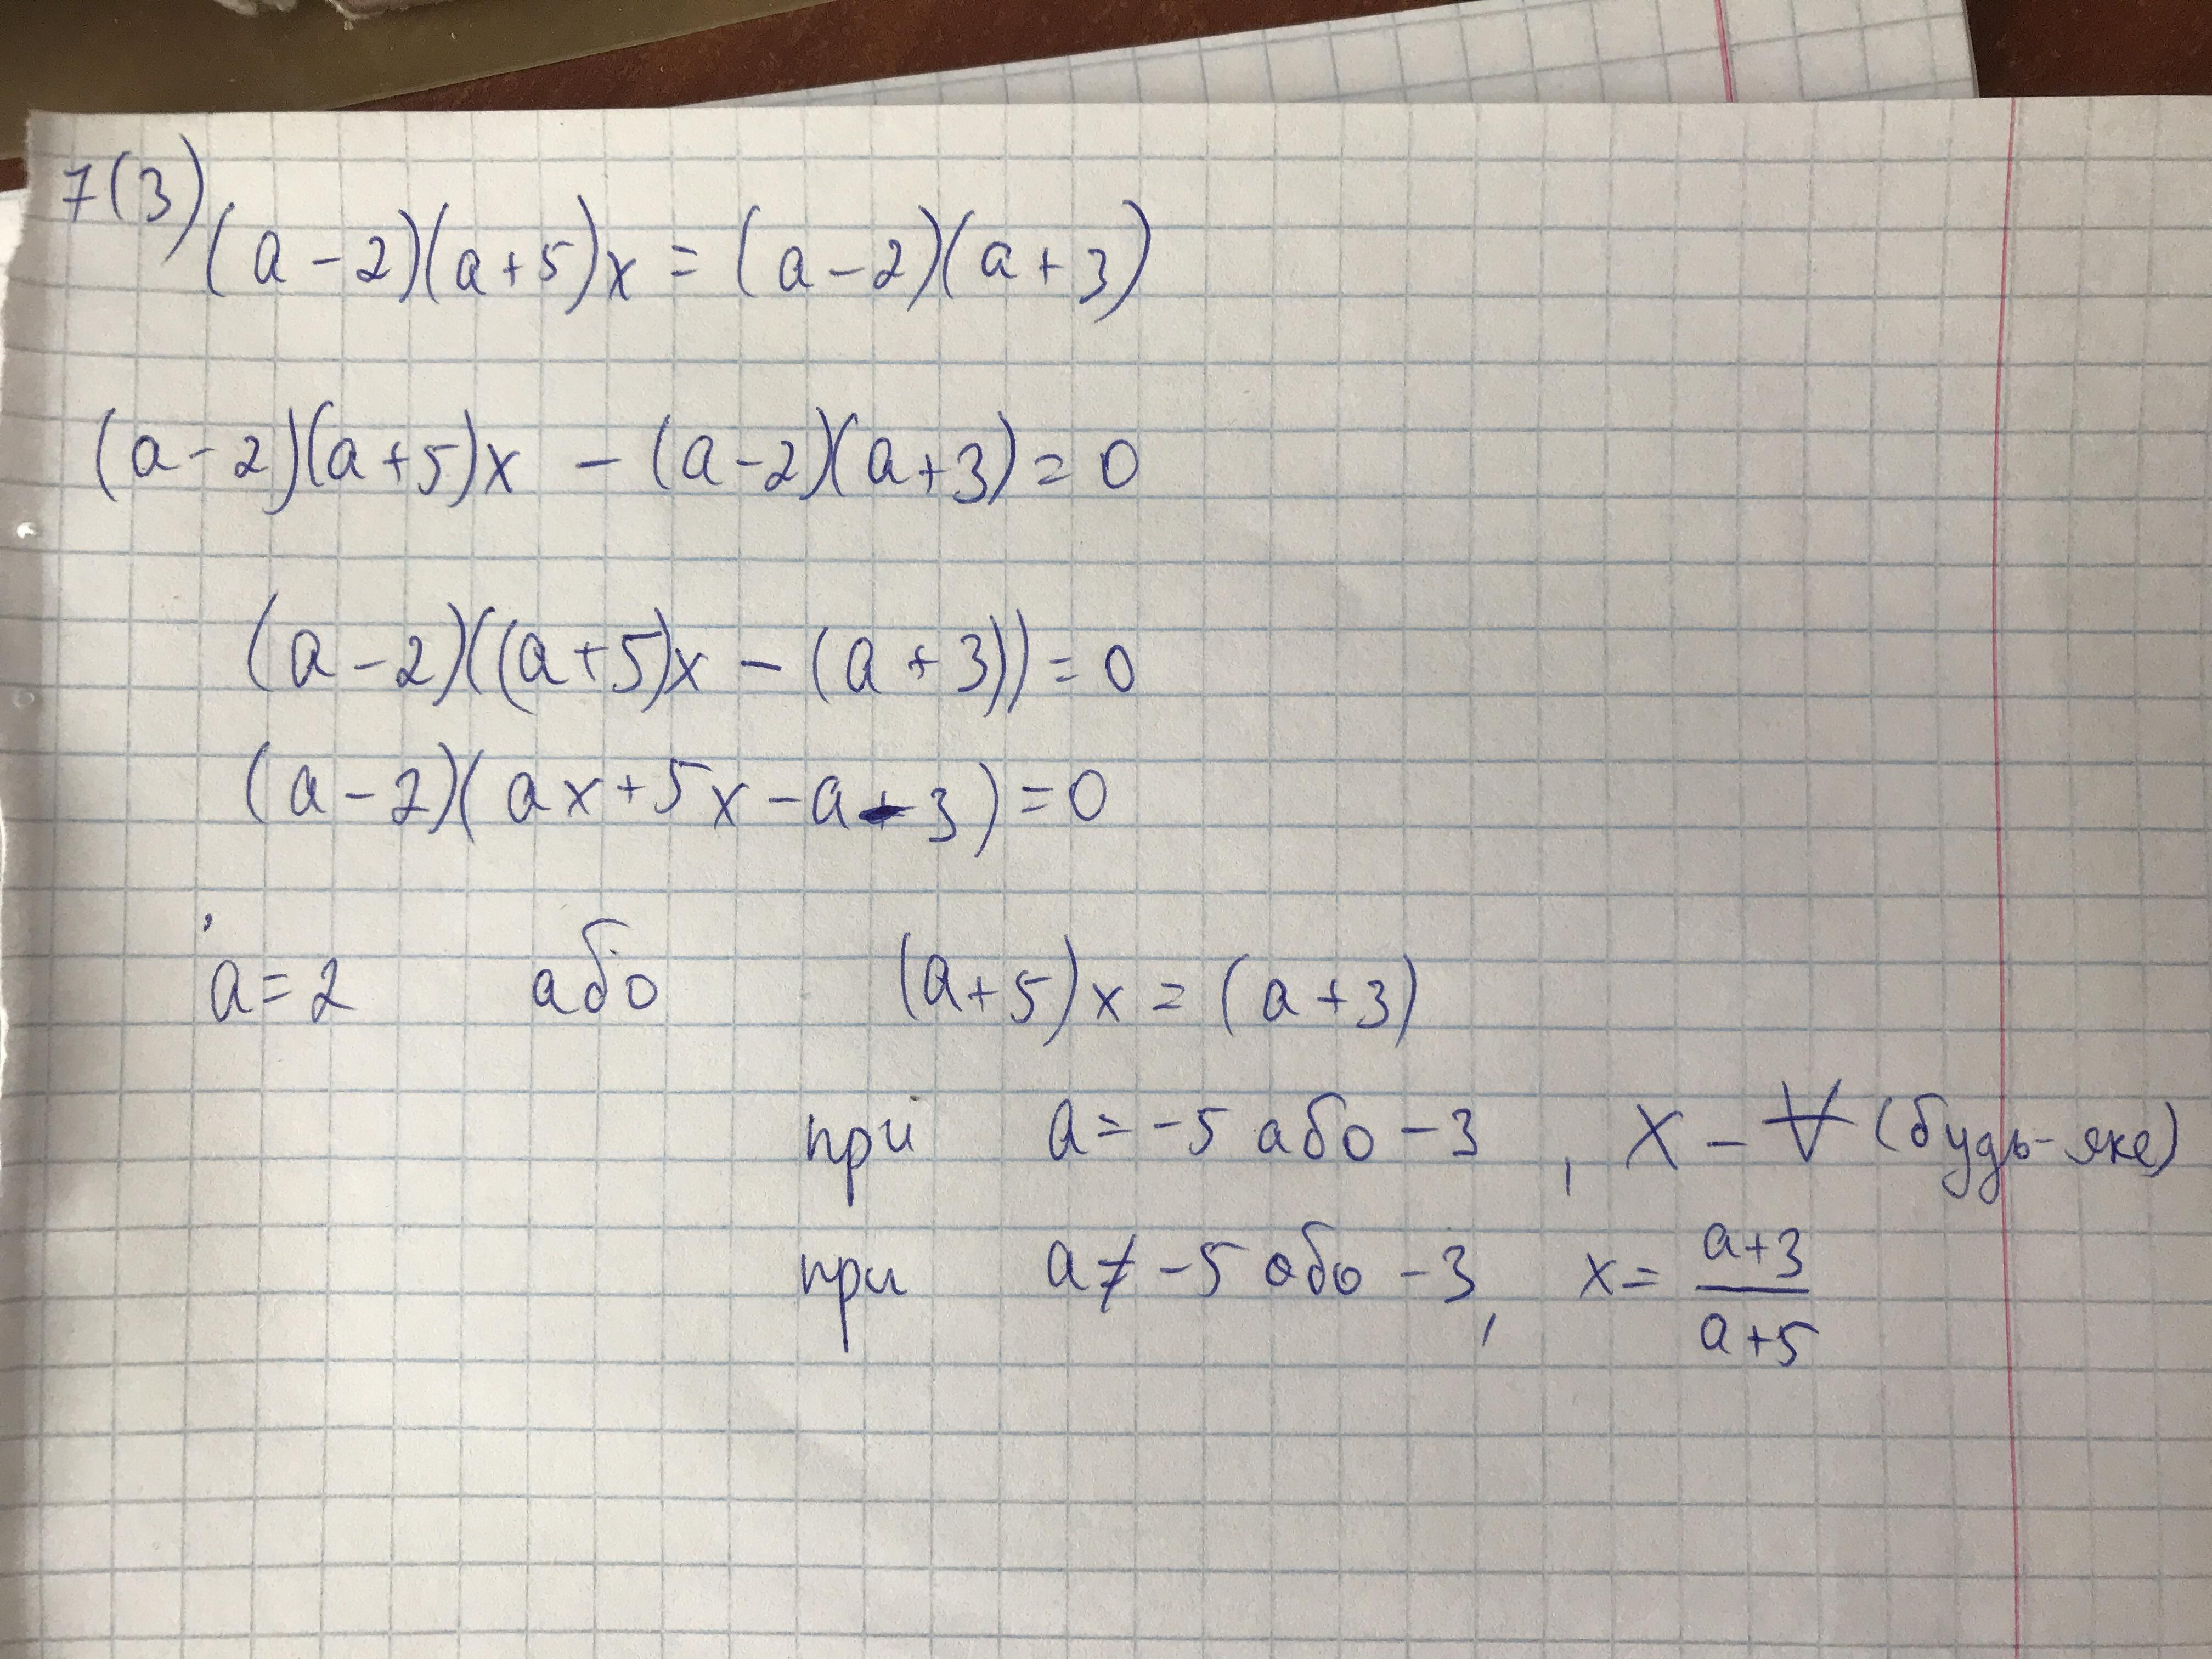 7(3) (a-2)(a+5)x = (a-2)(a+3)
(a-2)(a+5)x - (a-2)(a+3) = 0
(a-2)((a+5)x - (a+3)) = 0
(a-2)(ax+5x-a-3) = 0
a=2 або (a+5)x = (a+3)
при a=-5 або -3, x - ∀ (будь-яке)
при a≠-5 або -3, x = (a+3)/(a+5)